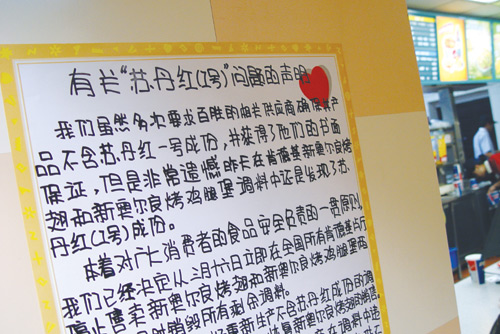 有关“苏丹红(1号)”问题的声明
我们虽然多次要求百胜的相关供应商确保其产
品不含苏丹红一号成份,并获得了他们的书面
保证,但是非常遗憾昨卡在肯德基新奥尔良烤
翅和新奥尔良烤鸡腿堡调料中还是发现了苏
丹红(1号)成份。
本着对广大消费者的食品安全负责的一贯原则,
我们已经决定从三月十六日立即在全国所有肯德基餐厅
停止售卖新奥尔良烤翅和新奥尔良烤鸡腿堡两
同时销毁所有剩余调料。
重新生产不含苏丹红成份的调